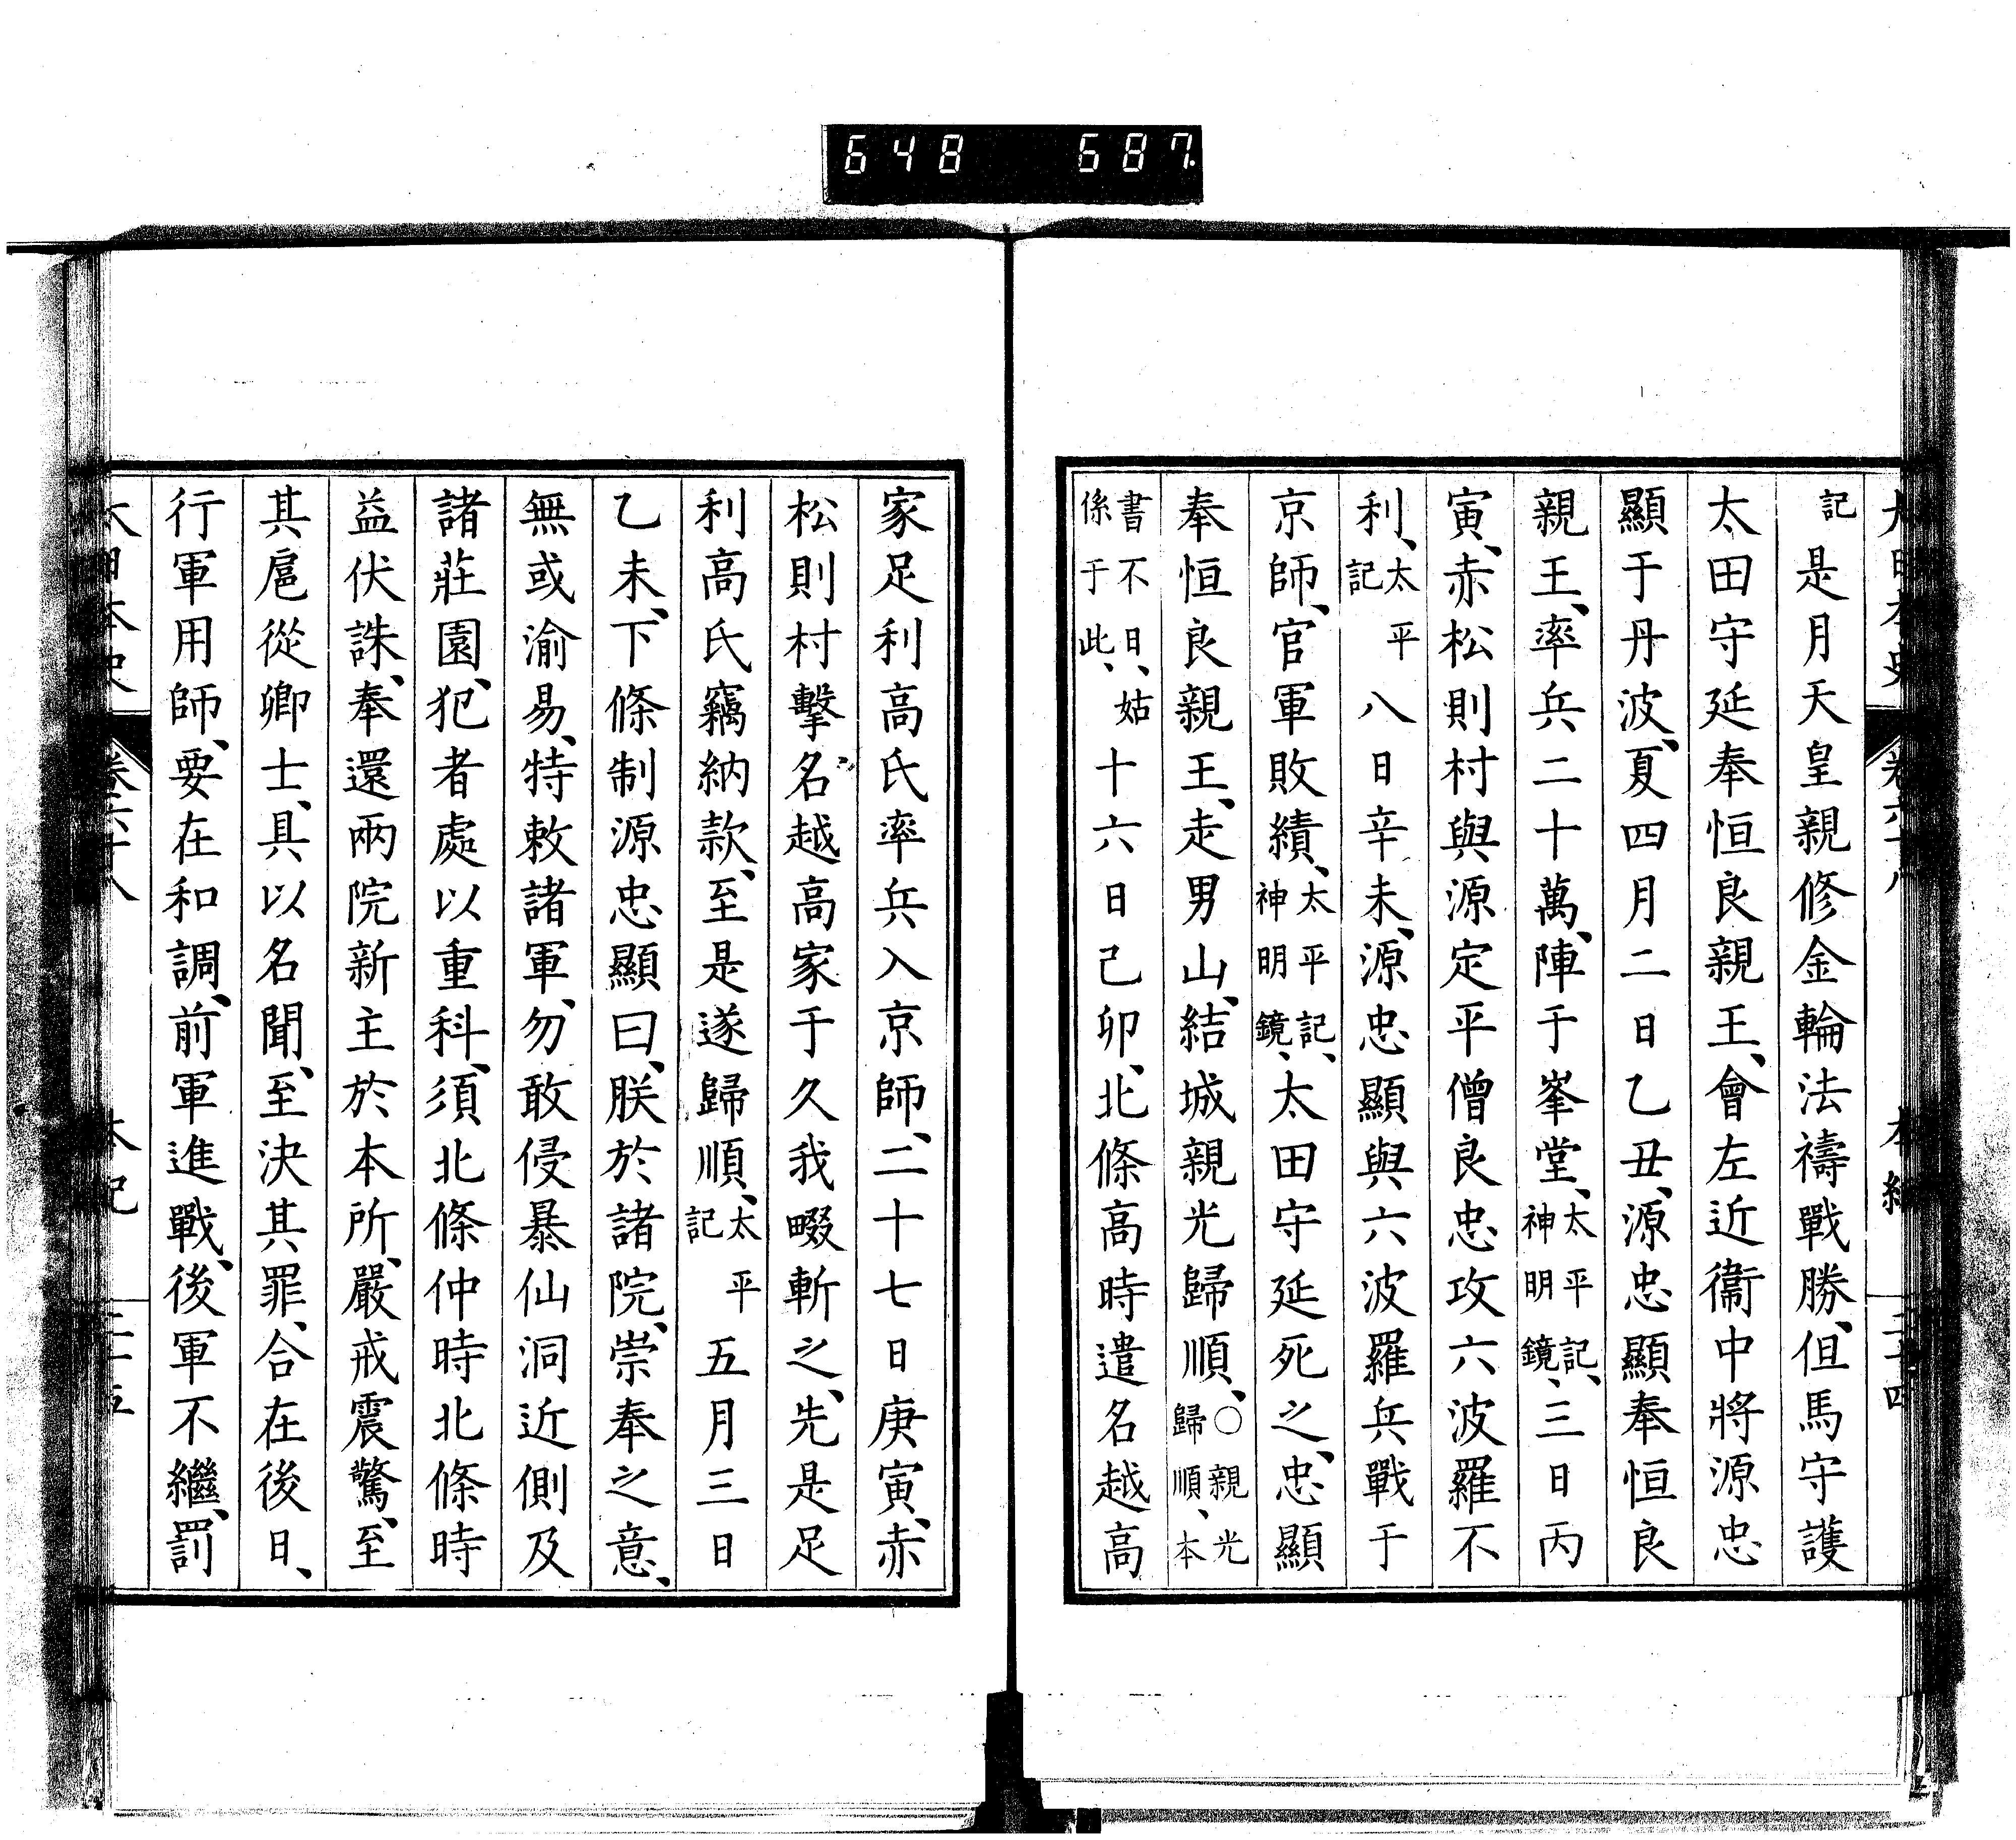 648 687.
大日本史 卷六十八 本紀 二十四
記 是月天皇親修金輪法禱戰勝、但馬守護
太田守延奉恒良親王、會左近衞中將源忠
顯于丹波、夏四月二日乙丑、源忠顯奉恒良
親王、率兵二十萬、陣于峯堂、太平記、神明鏡、三日丙
寅、赤松則村與源定平僧良忠攻六波羅不
利、太平記 八日辛未、源忠顯與六波羅兵戰于
京師、官軍敗績、太平記、神明鏡、太田守延死之、忠顯
奉恒良親王、走男山、結城親光歸順、○親光歸順、本
書不日、姑係于此、十六日己卯、北條高時遣名越高
家足利高氏率兵入京師、二十七日庚寅、赤
松則村擊名越高家于久我畷斬之、先是足
利高氏竊納款、至是遂歸順、太平記 五月三日
乙未、下條制源忠顯曰、朕於諸院、崇奉之意、
無或渝易、特敕諸軍、勿敢侵暴仙洞近側及
諸莊園、犯者處以重科、須北條仲時北條時
益伏誅、奉還兩院新主於本所、嚴戒震驚、至
其扈從卿士、具以名聞、至決其罪、合在後日、
行軍用師、要在和調、前軍進戰、後軍不繼、罰
大日本史 卷六十八 本紀 二十五